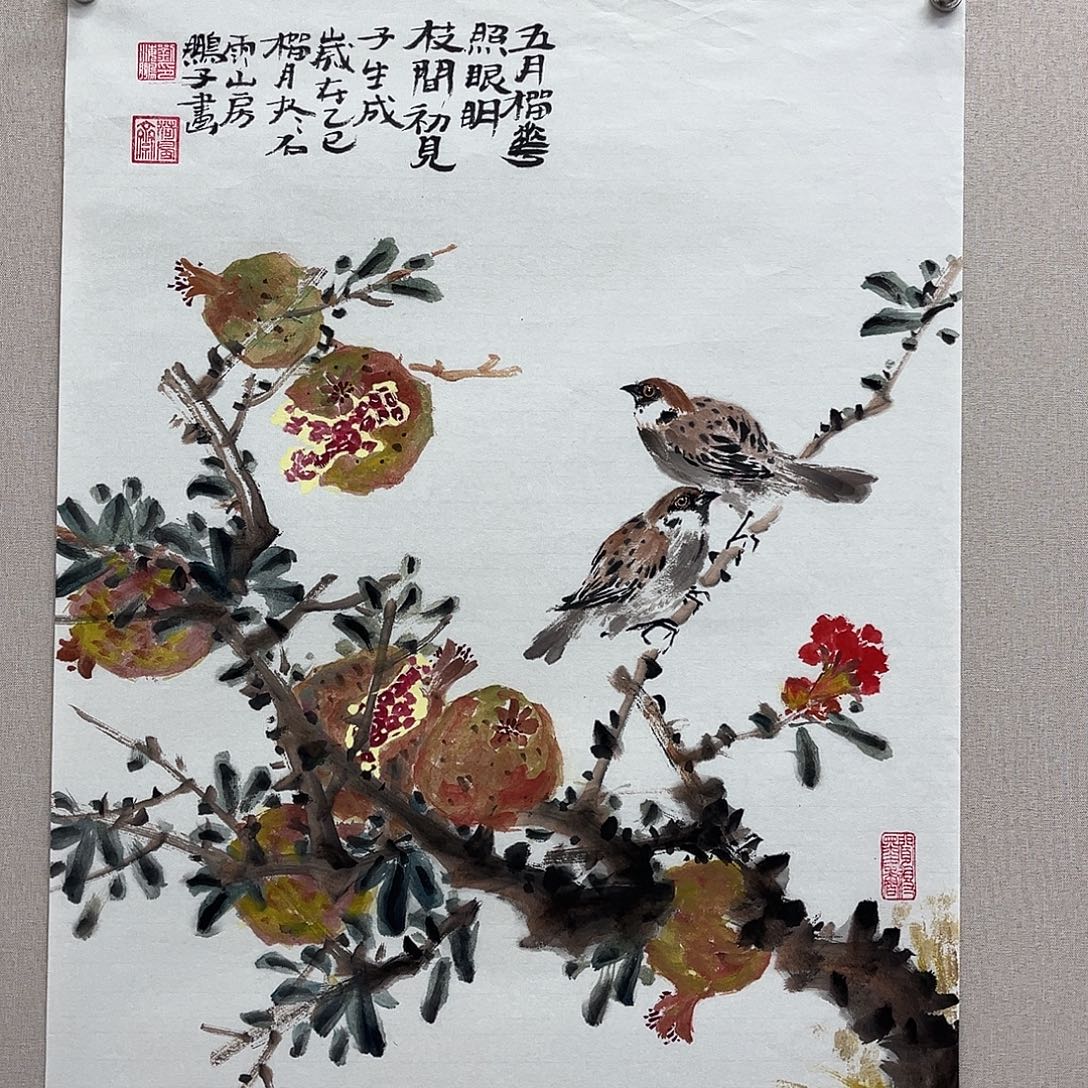 五月榴華
照眼明
枝間初見
子生成
歲在乙巳
榴月於石
雨山房
鵬子畫